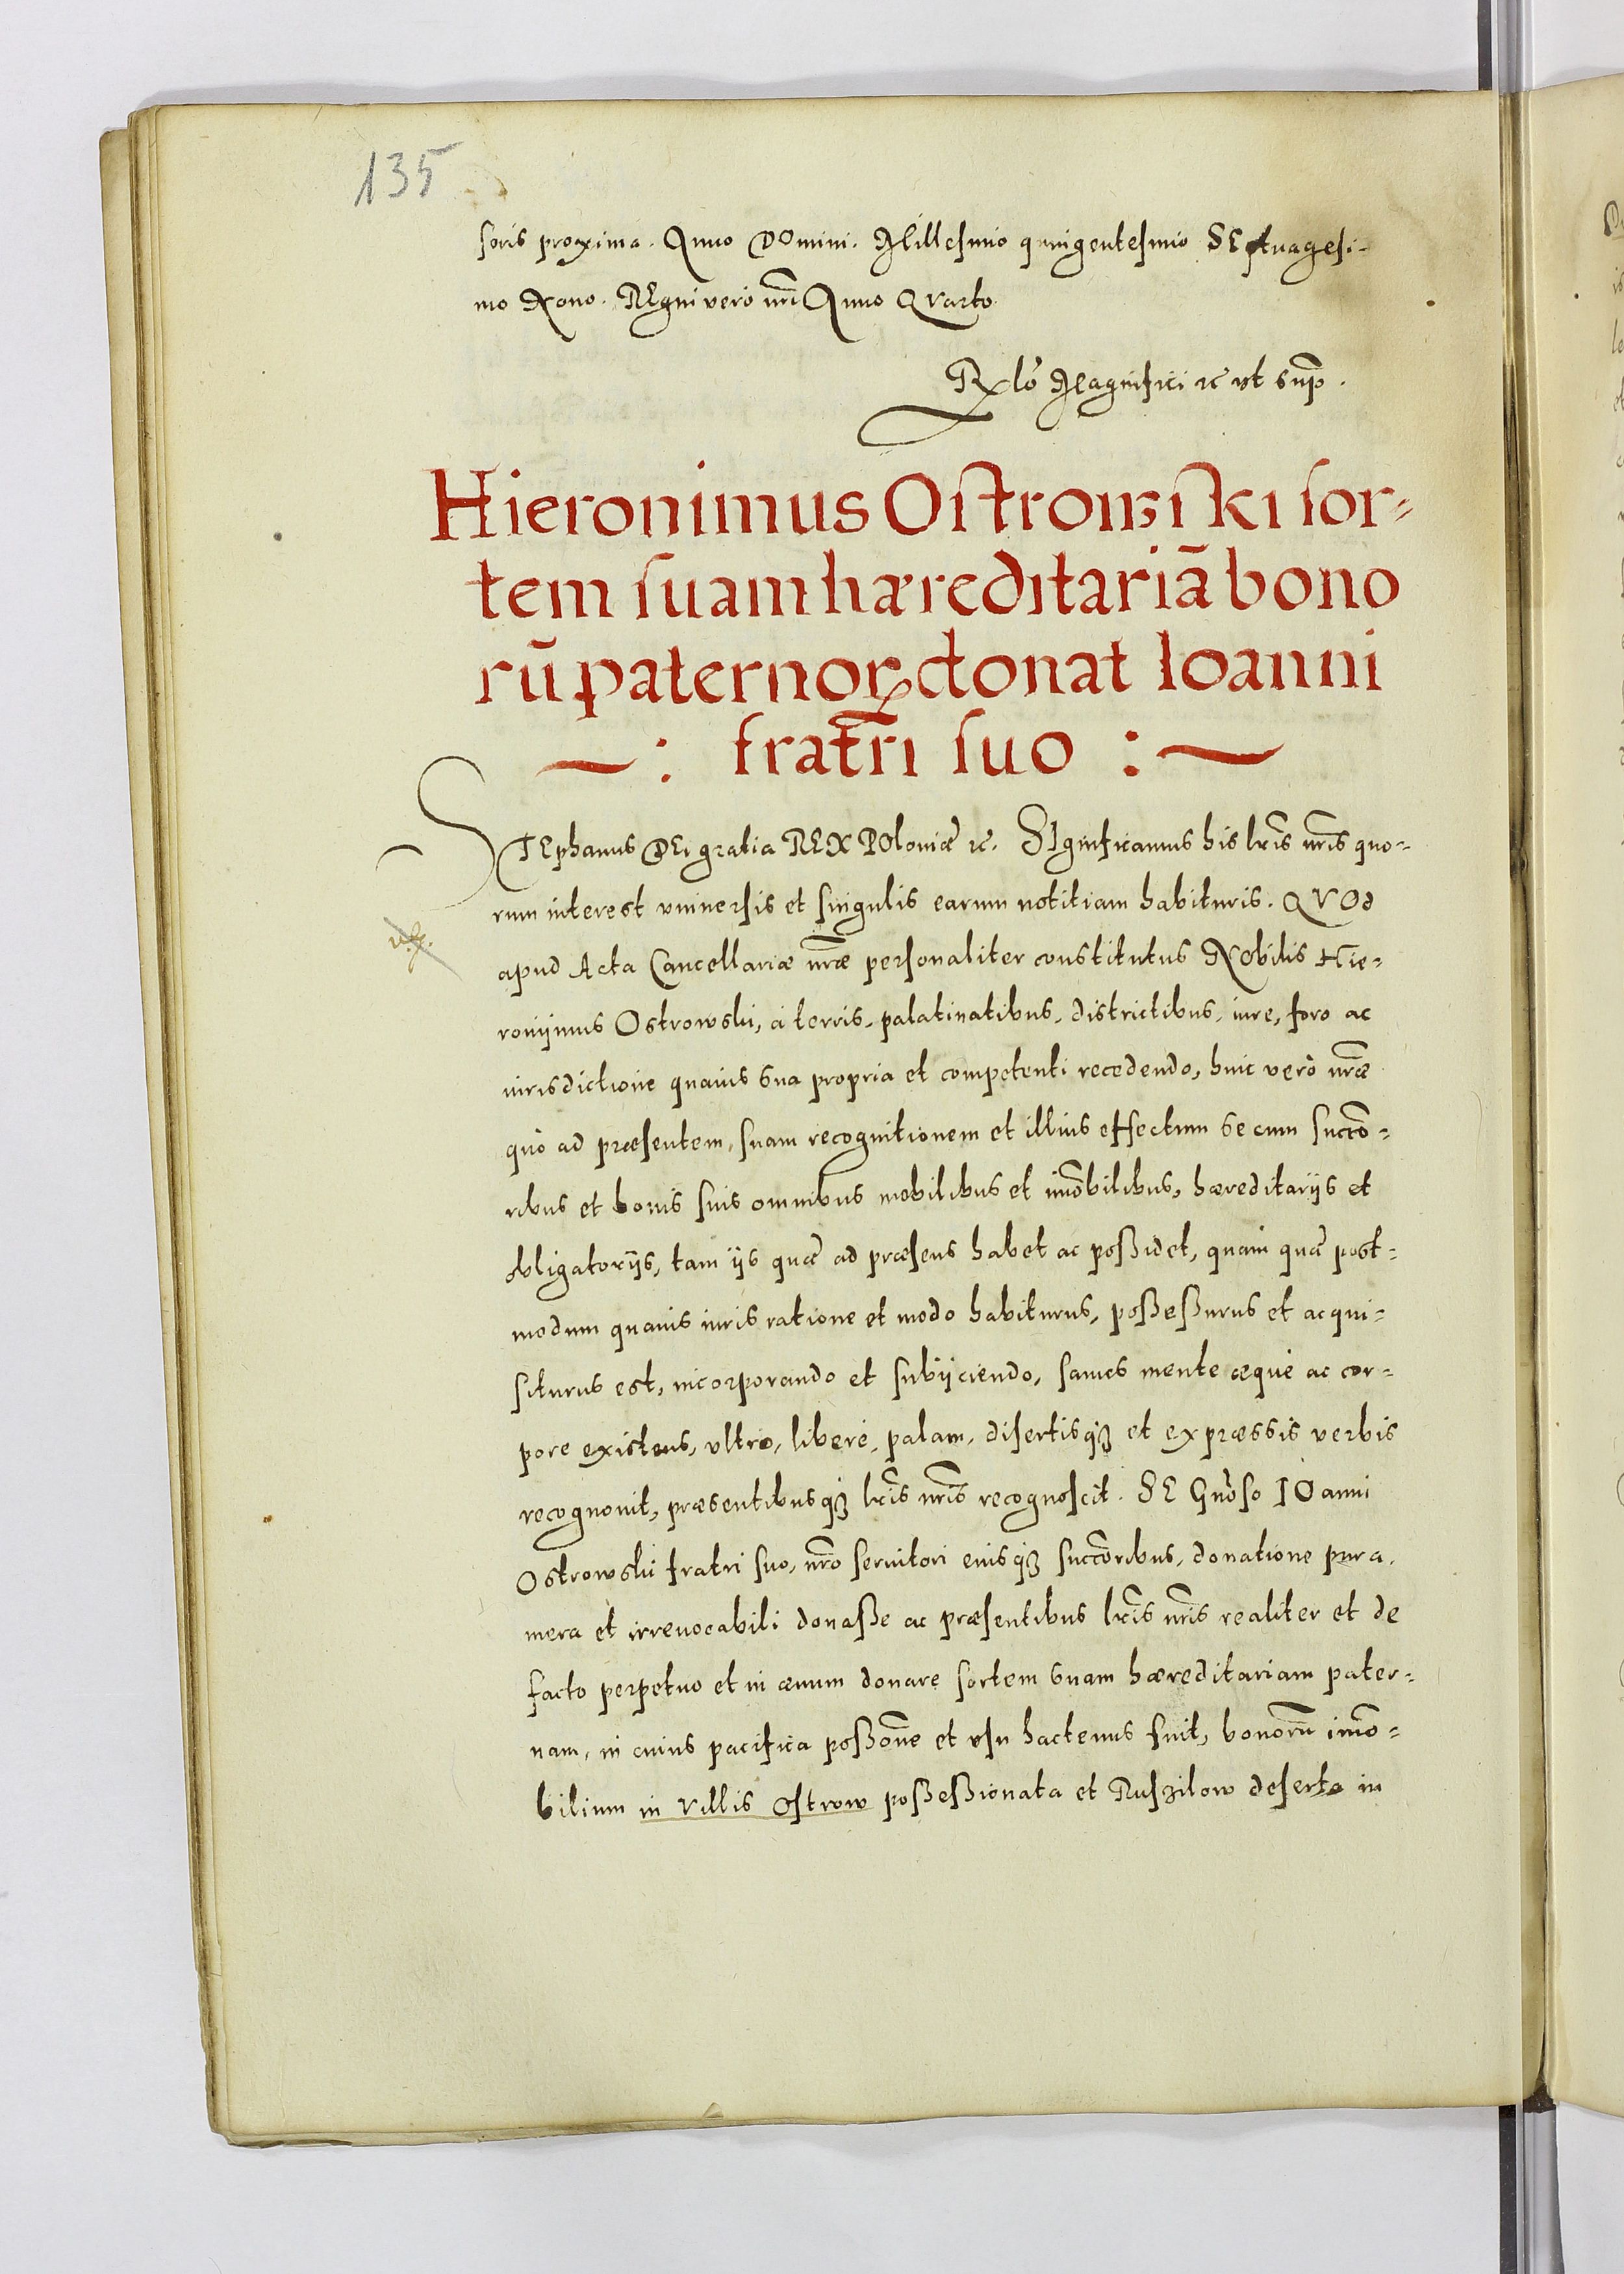 135
soris proxima. Anno DOmini. Millesimo quingentesimo SEptuagesi-
mo Nono. REgni vero nri Anno Qvarto
Rlo Magnifici rc vt sup.
Hieronimus Ostrowski sor-
tem suam hæreditariā bono
rū paternoꝝ donat Ioanni
~ : fratri suo : ~
STEphanus DEi gratia REX POloniæ rc. SIgnificamus his lris nris quo-
rum interest vniuersis et singulis earum notitiam habituris. QVOd
apud Acta Cancellariæ nræ personaliter constitutus NObilis Hie-
ronijmus Ostrowski, à terris, palatinatibus, districtibus, iure, foro ac
iurisdictione quauis sua propria et competenti recedendo, huic verò nræ
quò ad præsentem, suam recognitionem et illius effectum se cum succo-
ribus et bonis suis omnibus mobilibus et imobilibus, hæreditarijs et
obligatorijs, tam ijs quæ ad præsens habet ac poßidet, quàm quæ post-
modum quauis iuris ratione et modo habiturus, poßeßurus et acqui-
siturus est, incorporando et subijciendo, sanus mente æquè ac cor-
pore existens, vltro, liberè, palam, disertisqꝫ et expræssis verbis
recognouit, præsentibusqꝫ lris nris recognoscit. SE Gnoso IOanni
Ostrowski fratri suo, nro seruitori eiusqꝫ succoribus, donatione pura,
mera et irreuocabili donaße ac præsentibus lris nris realiter et de
facto perpetuo et in æuum donare sortem suam hæreditariam pater-
nam, in cuius pacifica poßone et vsu hactenus fuit, bonorū imo-
bilium in villis Ostrow poßeßionata et Ruszilow deserta in